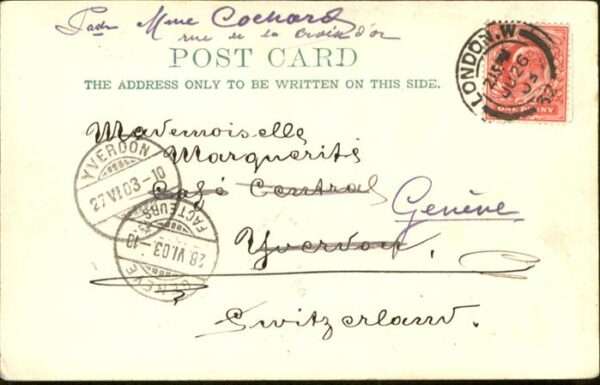 Mme Cochard
rue de la Croix d'or
POST CARD
THE ADDRESS ONLY TO BE WRITTEN ON THIS SIDE.
LONDON.W
JU 26
03
32
ONE PENNY
Mademoiselle
Marguerite
Café Central
Genève
Yverdon
Switzerland.
YVERDON
27 VI 03-10
FACTEURS
28 VI.03-
GENEVE